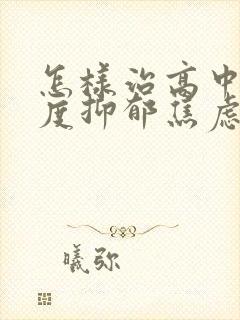 怎样治高中
度抑郁焦虑
曦弥